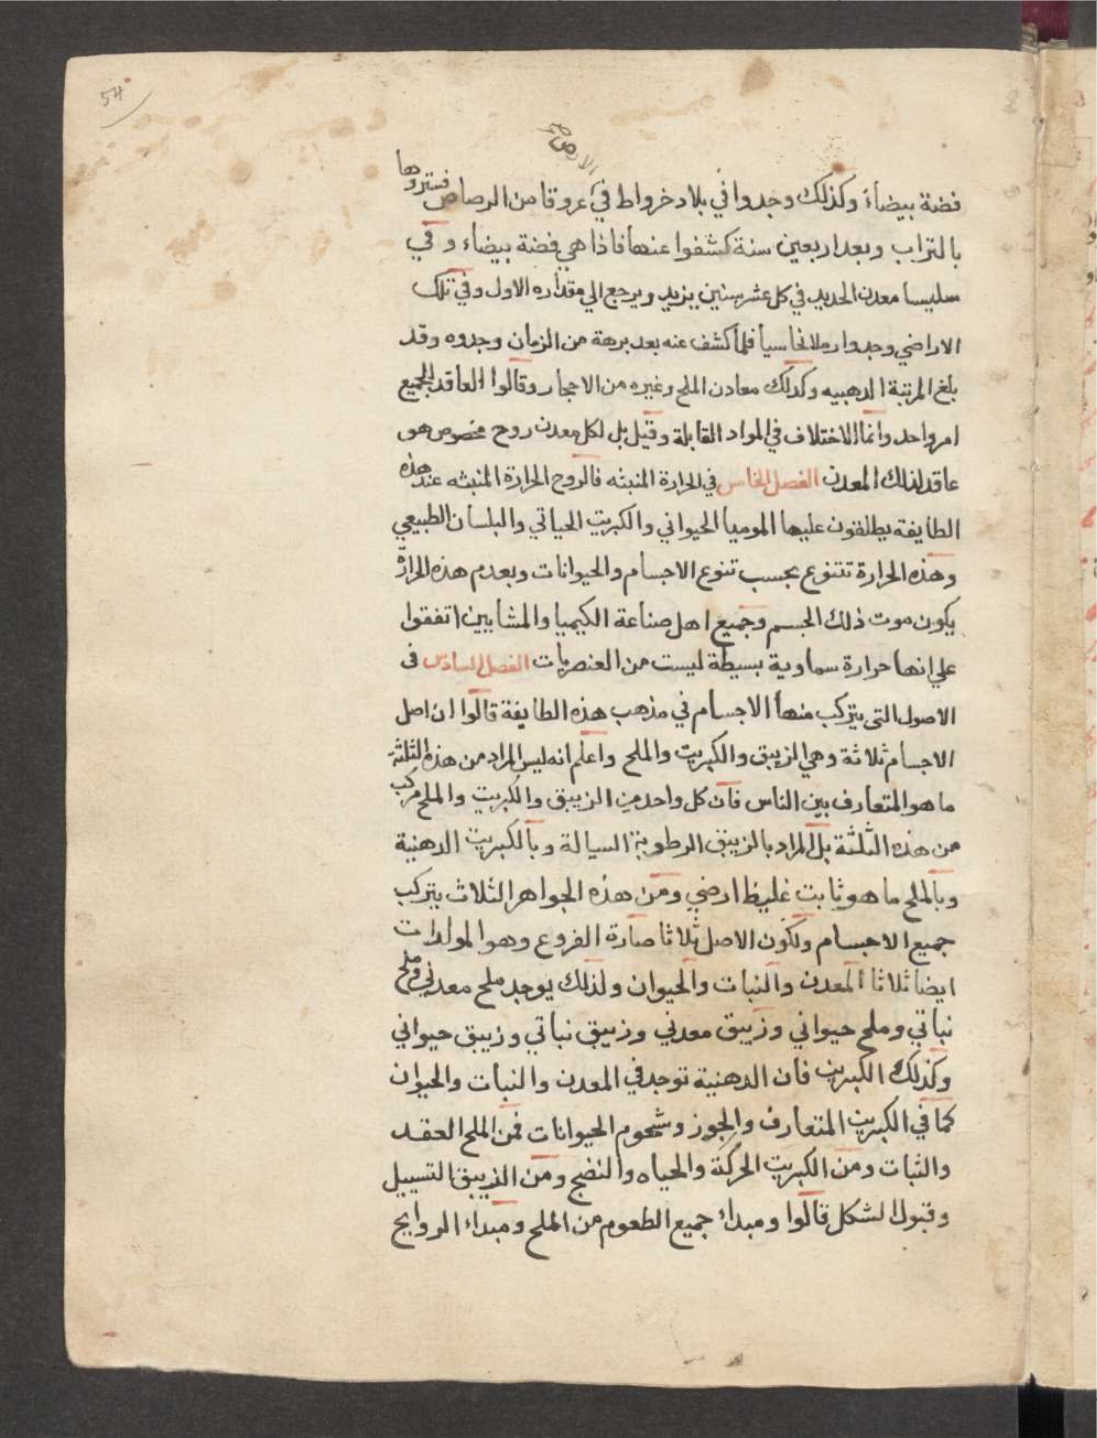 54
فضة بيضاء وكذلك وجدوا في بلاد خرواط في الارض عروقا من الرصاص فستروها
بالتراب وبعد اربعين سنة كشفوا عنها فاذا هي فضة بيضاء وفي
سليسا معدن الحديد في كل عشر سنين يزيد ويرجع الي مقداره الاول وفي تلك
الاراضي وجدوا رملا نحاسيا فلما كشف عنه بعد برهة من الزمان وجدوه وقد
بلغ المرتبة الدهبيه وكذلك معادن الملح وغيره من الاحجار وقالوا العاقد للجميع
امر واحد وانما الاختلاف في المواد القابلة وقيل بل لكل معدن روح مخصوص هو
عاقد لذلك المعدن الفصل الخامس في الحرارة المنبثه فالروح الحرارة المنبثه عند هذه
الطايفه يطلقون عليها الموميا الحيواني والكبريت الحياتي والبلسان الطبيعي
وهذه الحرارة تتنوع بحسب تنوع الاجسام والحيوانات وبعدم هذه الحرارة
يكون موت ذلك الجسم وجميع اهل صناعة الكيميا والمشايين اتفقوا
علي انها حرارة سماوية بسيطة ليست من العنصريات الفصل السادس فى
الاصول التى يتركب منها الاجسام في مذهب هذه الطايفة قالوا ان اصل
الاجسام ثلاثة وهي الزيبق والكبريت والملح واعلم انه ليس المراد من هذه الثلثة
ما هو المتعارف بين الناس فان كل واحد من الزيبق والكبريت والملح مركب
من هذه الثلثة بل المراد بالزيبق الرطوبة السيالة وبالكبريت الدهنية
وبالملح ما هو ثابت غليظ ارضي ومن هذه الجواهر الثلاث يتركب
جميع الاجسام ولكون الاصل ثلاثا صارة الفروع وهو المولدات
ايضا ثلاثا المعدن والنبات والحيوان ولذلك يوجد ملح معدني وملح
نباتي وملح حيواني وزيبق معدني وزيبق نباتي وزيبق حيواني
وكذلك الكبريت فان الدهنية توجد في المعدن والنبات والحيوان
كما في الكبريت المتعارف والجوز وشحوم الحيوانات فمن الملح العقد
والثبات ومن الكبريت الحركة والحياه والنضج ومن الزيبق التسييل
وقبول الشكل قالوا ومبداء جميع الطعوم من الملح ومبداء الروايح